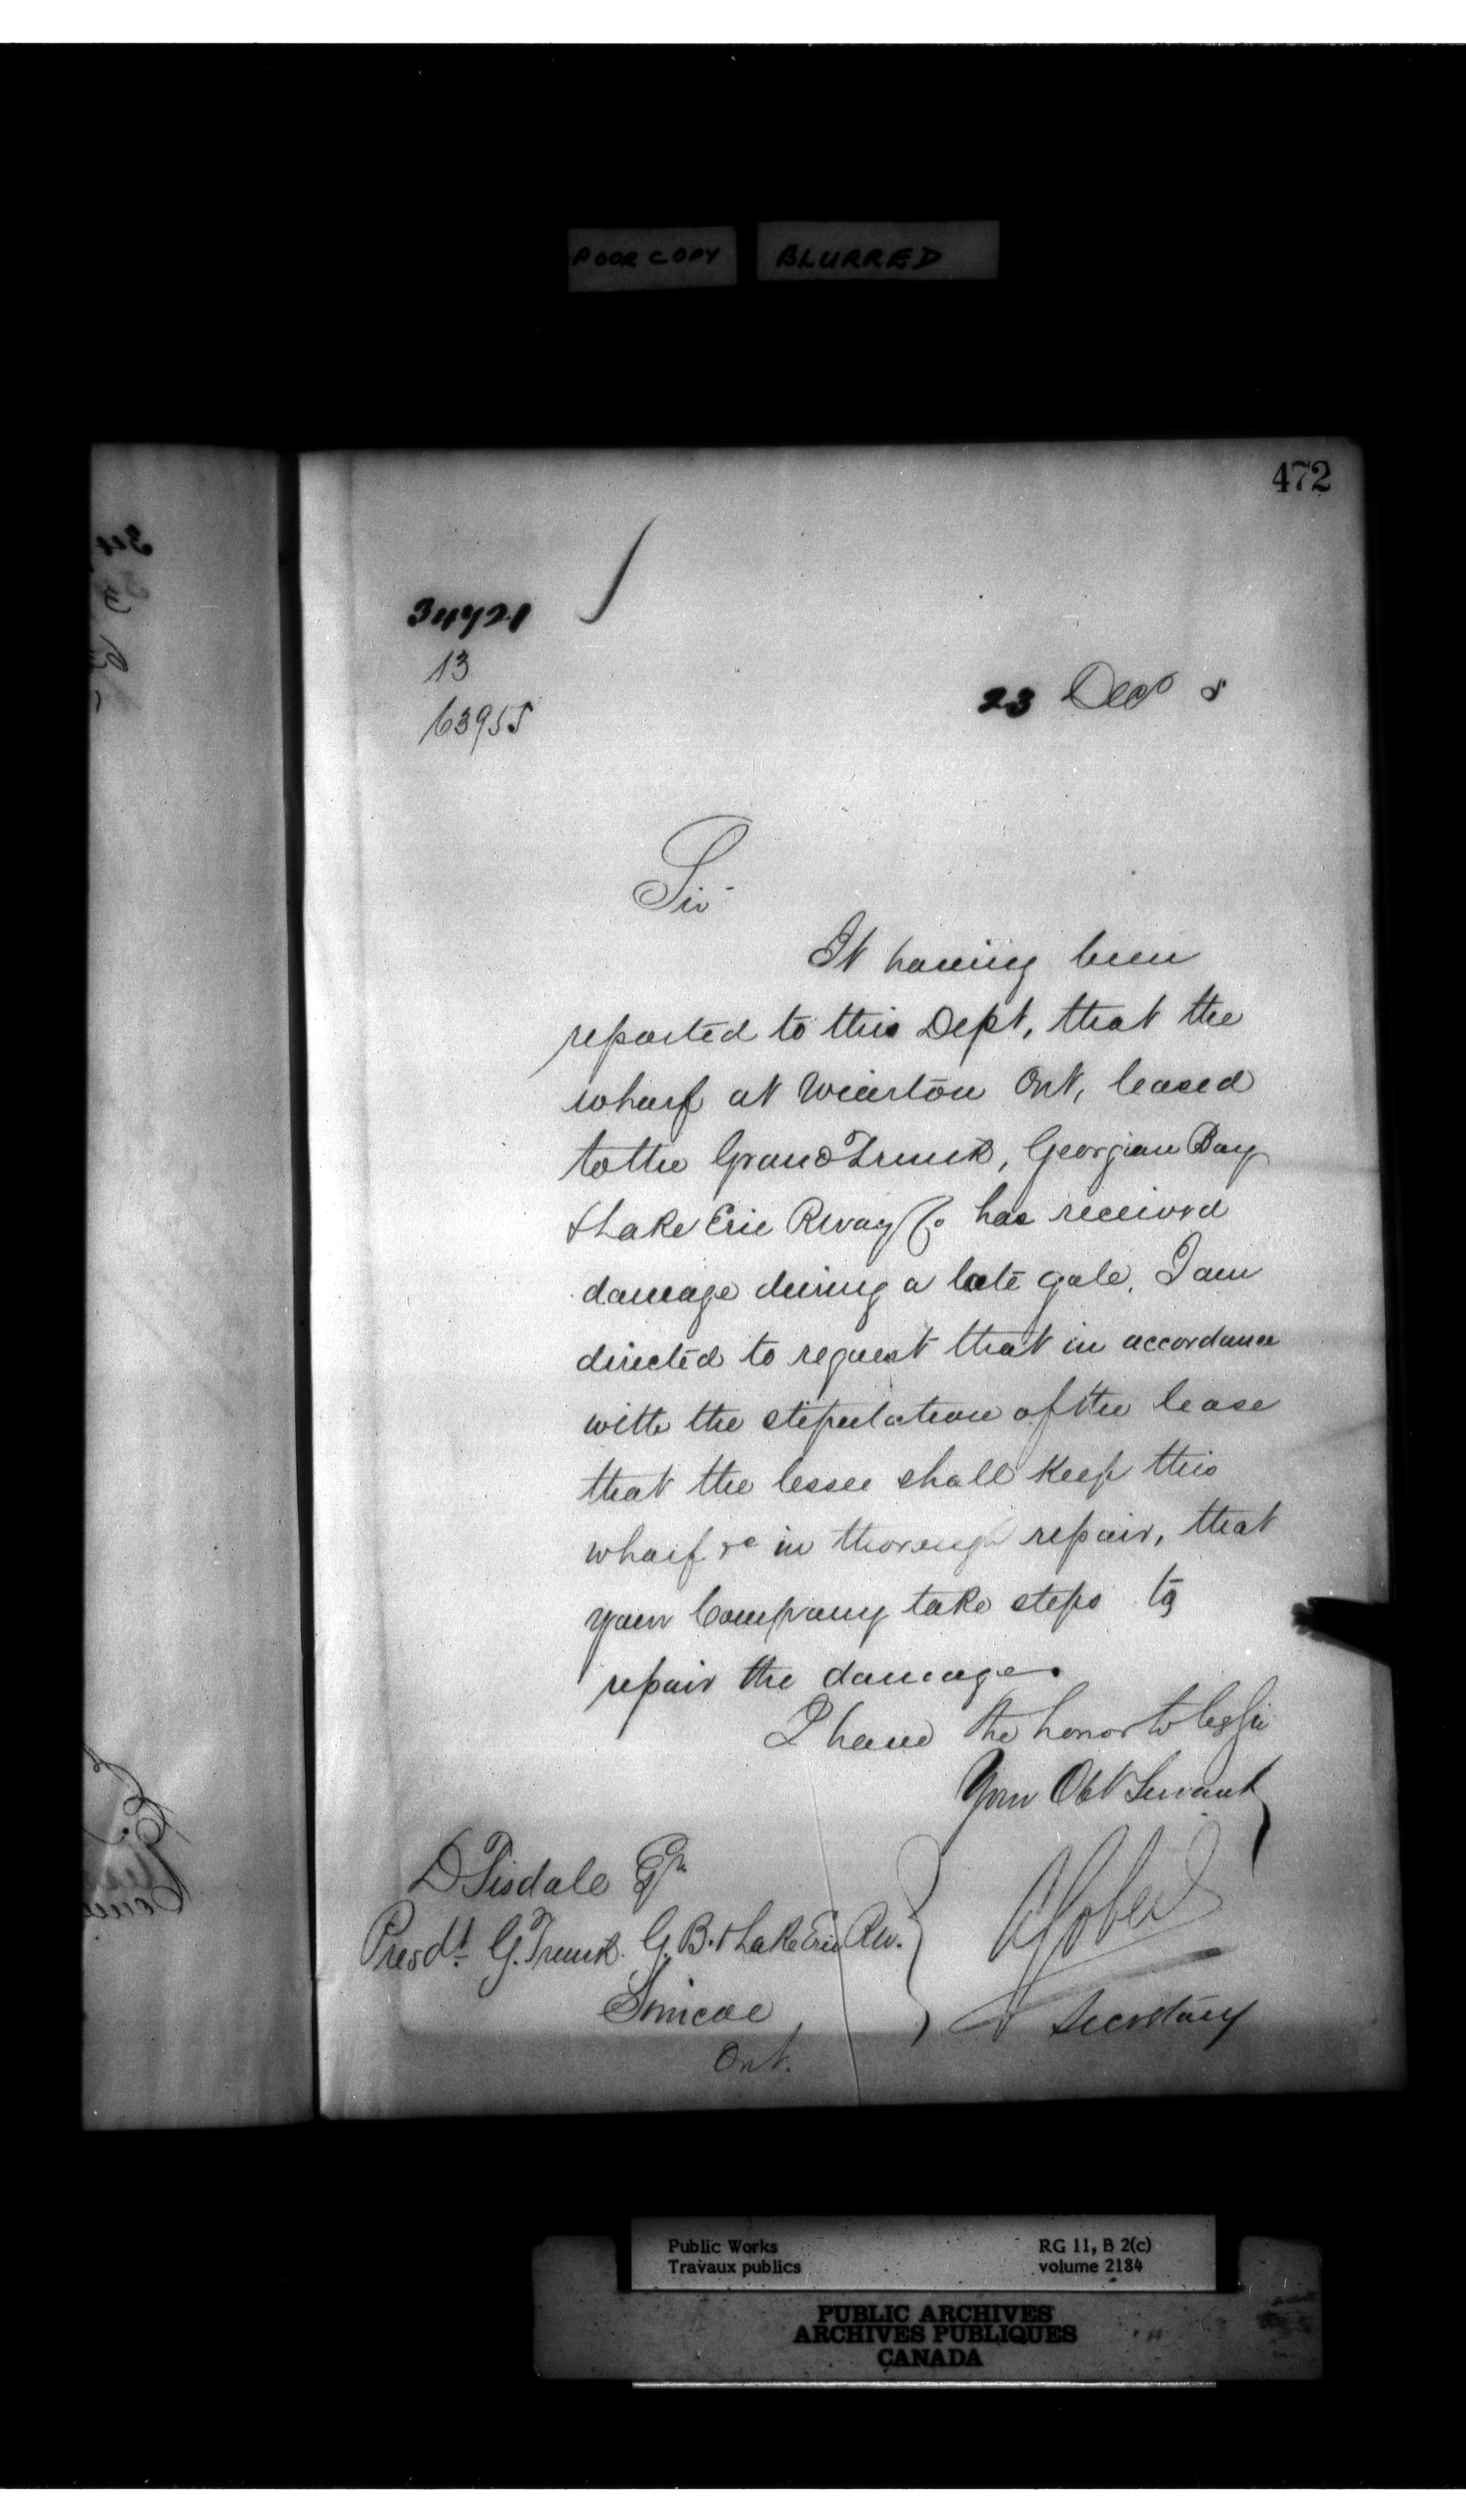 POOR COPY BLURRED
472
34721
13
63955
23 Decr 8
Sir
It having been
reported to this Dept, that the
wharf at Wiarton Ont, leased
to the Grand Trunk, Georgian Bay
& Lake Erie Rway Co has received
damage during a late gale, I am
directed to request that in accordance
with the stipulation of the lease
that the lessee shall keep this
wharf &c in thorough repair, that
your Company take steps to
repair the damage.
I have the honor to be Sir
Your Obt Servant
D Tisdale Esqr
Presdt. G. Trunk. G. B. & Lake Erie Rw.
Simcoe
Ont.
Secretary
Public Works
Travaux publics
RG 11, B 2(c)
volume 2184
PUBLIC ARCHIVES
ARCHIVES PUBLIQUES
CANADA